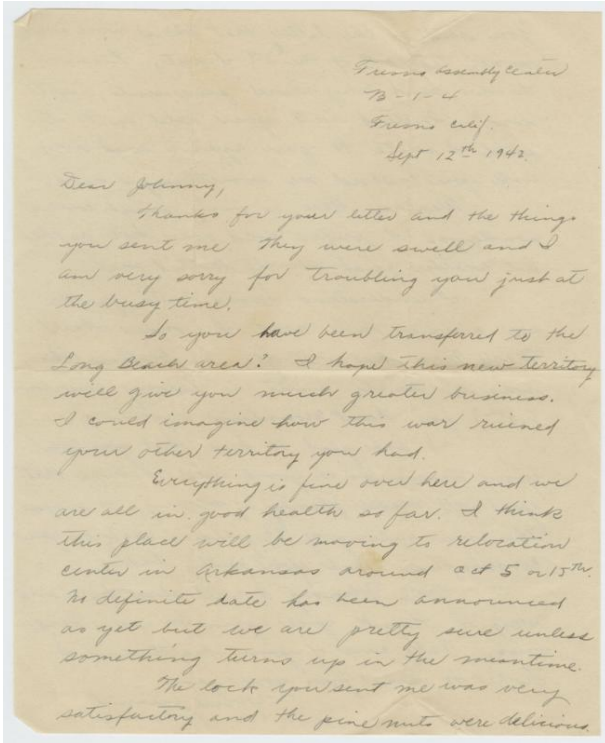 Fresno Assembly Center
B-1-4
Fresno Calif.
Sept 12th 1942.
Dear Johnny,
Thanks for your letter and the things
you sent me they were swell and I
am very sorry for troubling you just at
the busy time.
So you have been transferred to the
Long Beach area? I hope this new territory
will give you much greater business.
I could imagine how this war ruined
your other territory you had.
Everything is fine over here and we
are all in good health so far. I think
this place will be moving to relocation
center in Arkansas around Oct 5 or 15th.
No definite date has been announced
as yet but we are pretty sure unless
something turns up in the meantime.
The lock you sent me was very
satisfactory and the pine nuts were delicious.